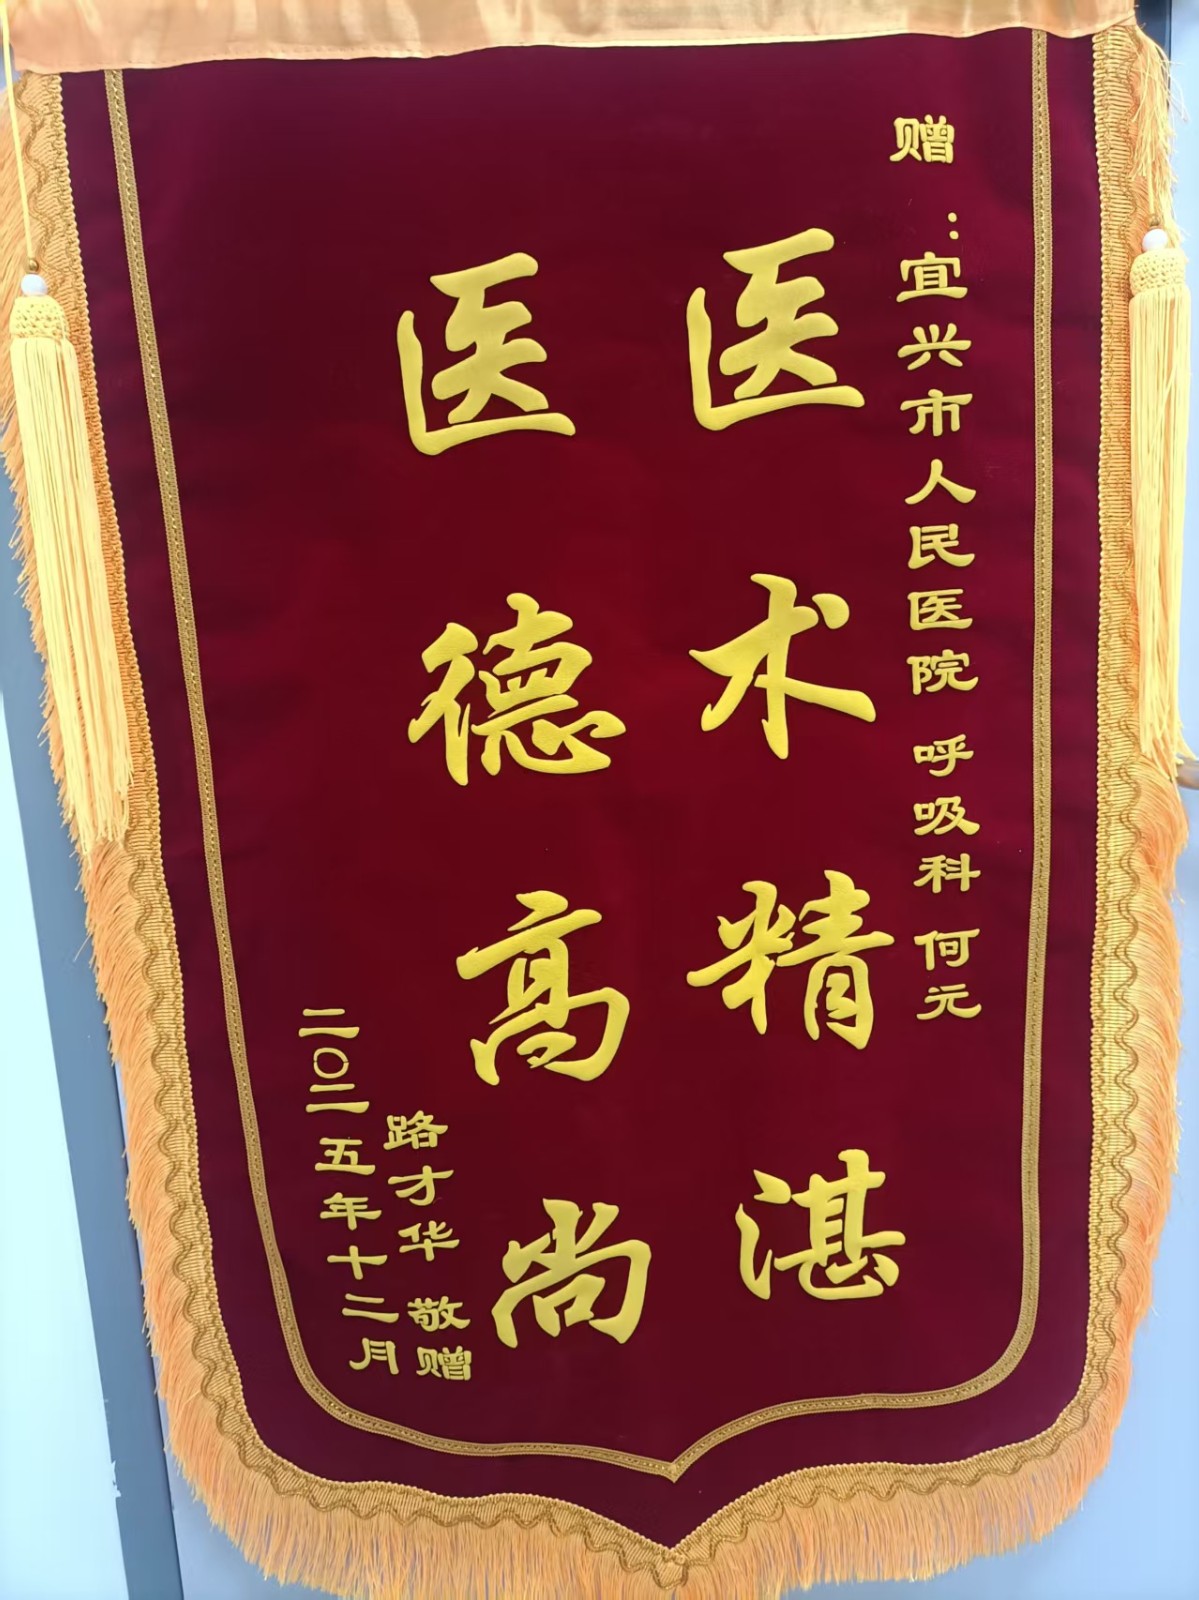 赠：宜兴市人民医院 呼吸科 何元
医术精湛
医德高尚
路才华 敬赠
二〇二五年十二月